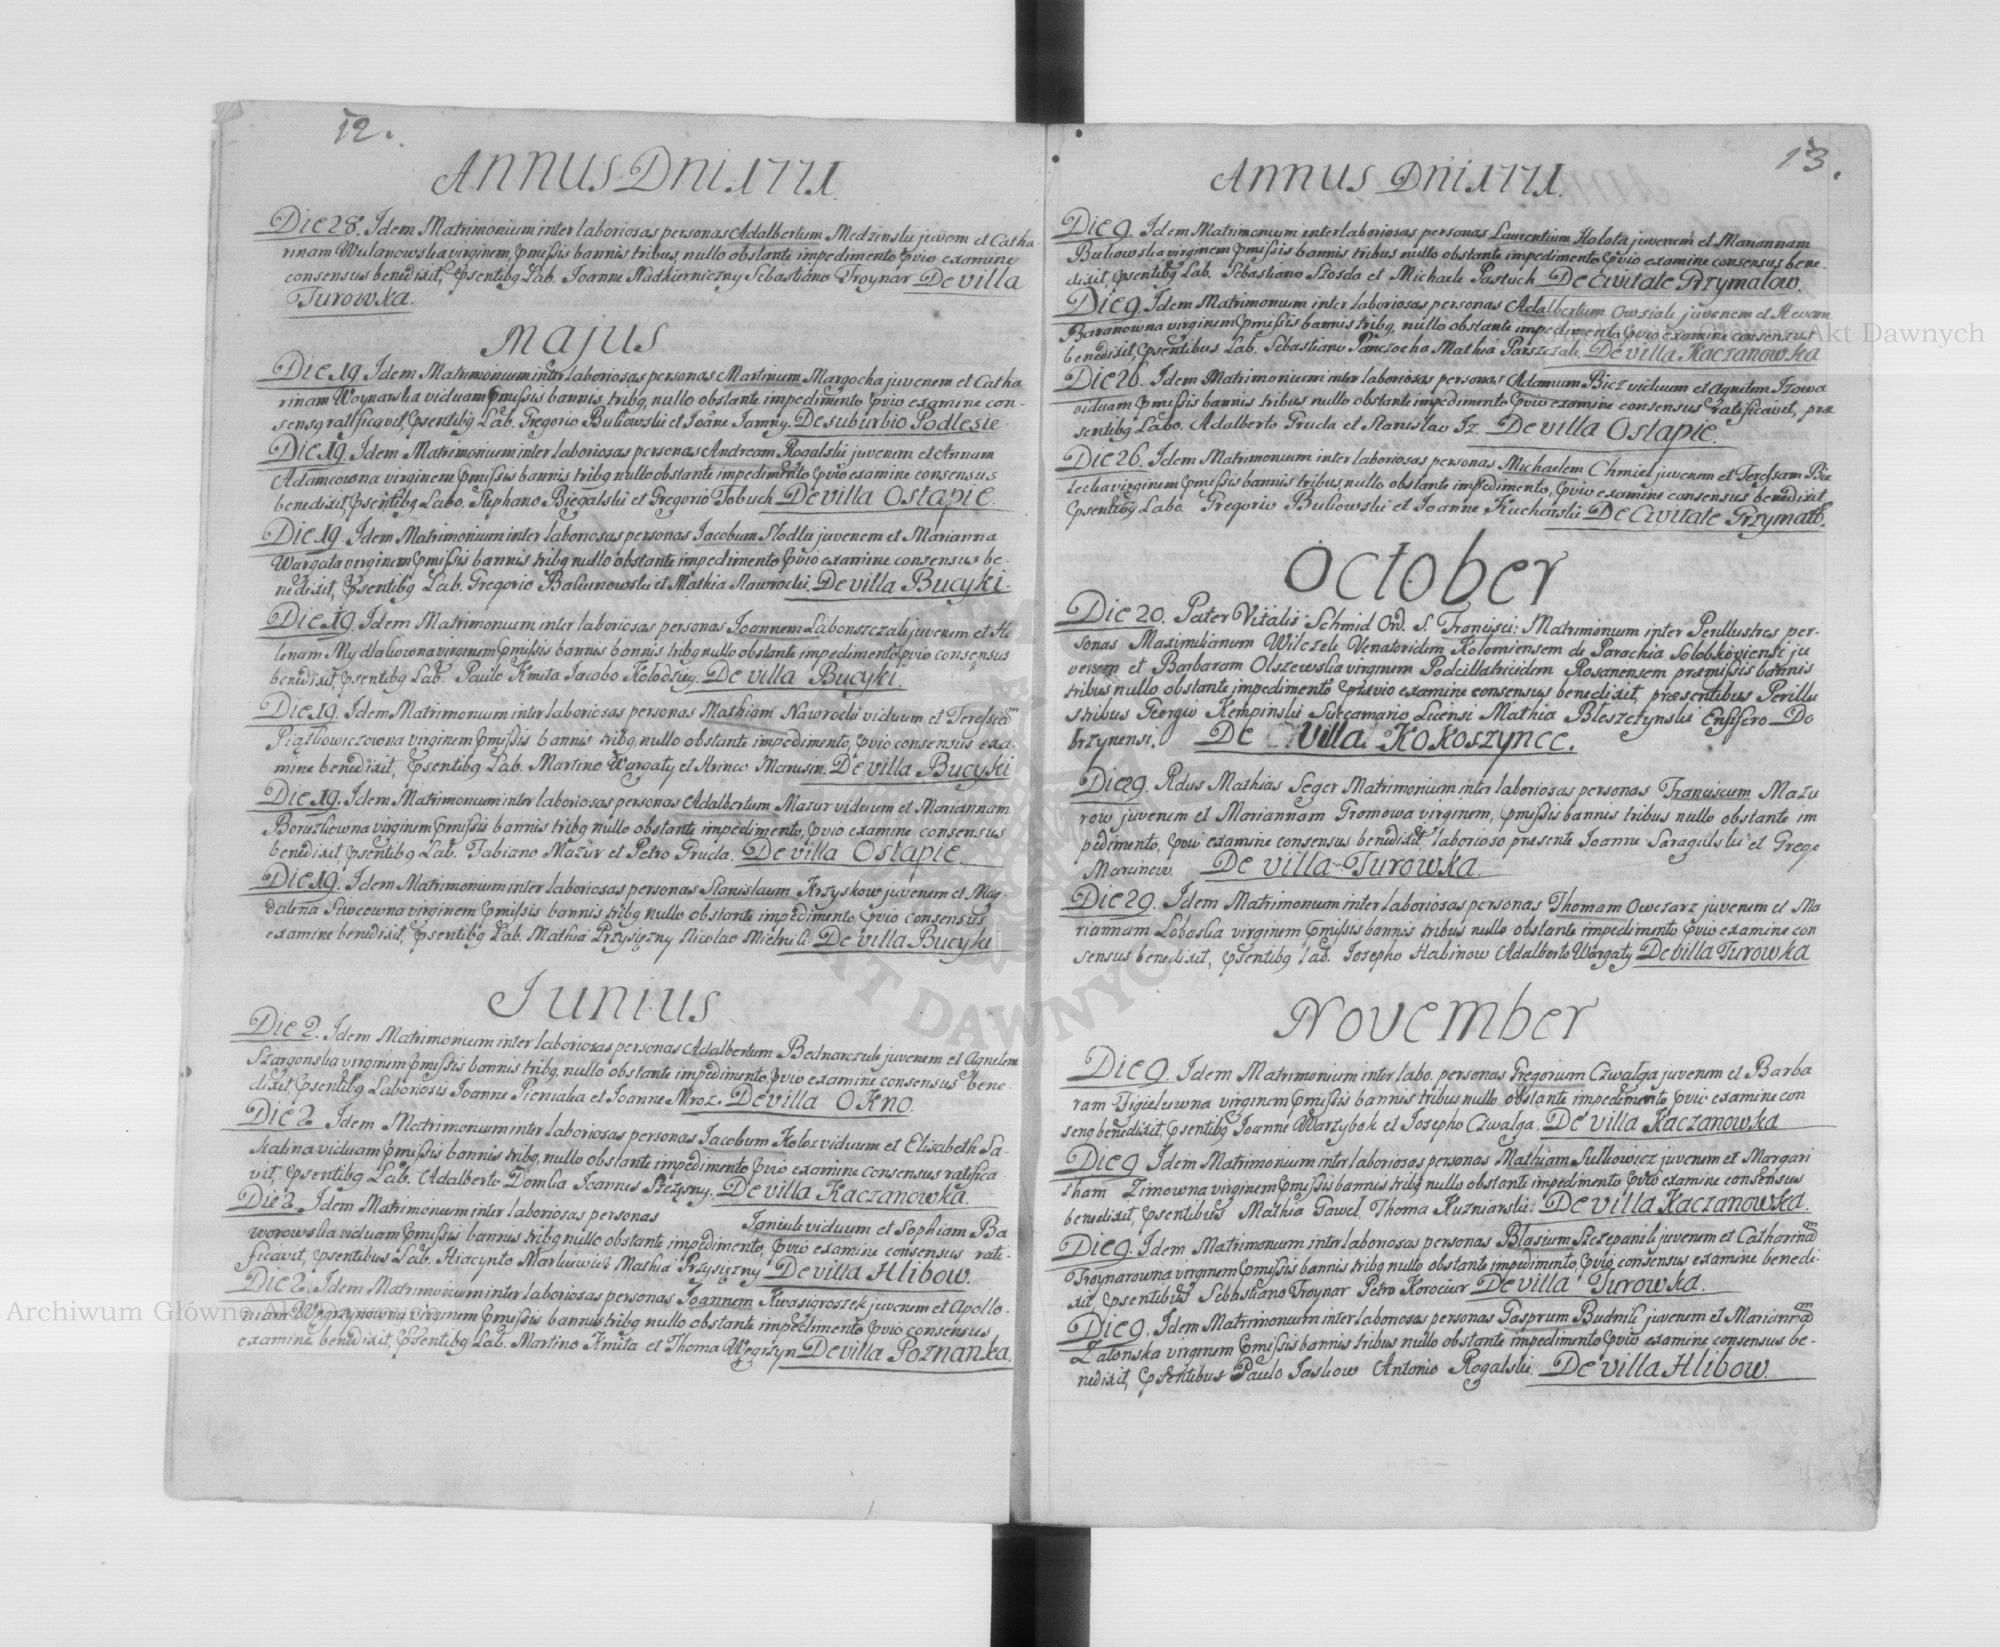 12.
ANNUS DNI 1771.
Die 28. Idem Matrimonium inter laboriosas personas Adalbertum Medzinski juvem et Catha-
rinam Wulanowska virginem, pmissis bannis tribus, nullo obstante impedimento pvio examine
consensus benedixit, psentibq Lab. Joanne Nadkierniczny Sebastiano Troynar De villa
Turowka.
Majus
Die 19. Idem Matrimonium inter laboriosas personas Martinum Margocha juvenem et Catha
rinam Woynarska viduam pmissis bannis tribq, nullo obstante impedimento pvio examine con-
sensq ratificavit, psentibq Lab. Gregorio Bukowski et Joane Jamny. De suburbio Podlesie.
Die 19. Idem Matrimonium inter laboriosas personas Andream Rogalski juvenem et Annam
Adamcowna virginem pmissis bannis tribq nullo obstante impedimento pvio examine consensus
benedixit, psentibq Labo. Stephano Biegalski et Gregorio Tobuch De villa Ostapie.
Die 19. Idem Matrimonium inter laboriosas personas Jacobum Slodki juvenem et Marianna
Wargata virginem pmissis bannis tribq nullo obstante impedimento pvio examine consensus be-
nedixit, psentibq Lab. Gregorio Bakunowski et Mathia Nawrocki. De villa Bucyki.
Die 19. Idem Matrimonium inter laboriosas personas Joannem Labonszczak juvenem et He
lenam Mydlakowna virginem pmissis bannis bannis tribq nullo obstante impedimento pvio consensus
benedixit, psentibq Lab. Paulo Kmita Jacobo Kolodziey. De villa Bucyki.
Die 19. Idem Matrimonium inter laboriosas personas Mathiam Nawrocki viduum et Teressiam
Piątkowiczowna virginem pmissis bannis tribq, nullo obstante impedimento, pvio consensus exa-
mine benedixit, psentibq Lab. Martino Wargaty et Hrinco Marusin. De villa Bucyki
Die 19. Idem Matrimonium inter laboriosas personas Adalbertum Mazur viduum et Mariannam
Boruzkowna virginem pmissis bannis tribq nullo obstante impedimento, pvio examine consensus
benedixit psentibq Lab. Fabiano Mazur et Petro Gruda. De villa Ostapie
Die 19. Idem Matrimonium inter laboriosas personas Stanislaum Krzyskow juvenem et Mag
dalena Siwcowna virginem pmissis bannis tribq nullo obstante impedimento, pvio consensus
examine benedixit, psentibq Lab. Mathia Przysięzny Nicolao Mielnik. De villa Bucyki
Junius
Die 2. Idem Matrimonium inter laboriosas personas Adalbertum Bednarczuk juvenem et Agnetem
Szargonska virginem pmissis bannis tribq, nullo obstante impedimento pvio examine consensus bene-
dixit, psentibq Laboriosis Joanne Pieniaha et Joanne Mroz. De villa OKno.
Die 2. Idem Matrimonium inter laboriosas personas Jacobum Koloz viduum et Elisabeth Sa-
kalina viduam pmissis bannis tribq, nullo obstante impedimento pvio examine consensus ratifica-
vit, psentibq Lab. Adalberto Domka Joannes Szczęsny. De villa Kaczanowka.
Die 2. Idem Matrimonium inter laboriosas personas Janiuk viduum et Sophiam Ba
worowska viduam pmissis bannis tribq nullo obstante impedimento, pvio examine consensus rati-
ficavit, psentibus Lab. Hiacynto Markiewicz Mathia Przysięzny De villa Hlibow.
Die 2. Idem Matrimonium inter laboriosas personas Joannem Kwasigroszek juvenem et Apollo-
niam Węgrzynowna virginem pmissis bannis tribq nullo obstante impedimento pvio consensus
examine benedixit, psentibq Lab. Martino Kmita et Thoma Węgrzyn De villa Poznanka.
13.
ANNUS DNI 1771.
Die 9. Idem Matrimonium inter laboriosas personas Laurentium Holota juvenem et Mariannam
Bukowska virginem pmissis bannis tribus nullo obstante impedimento pvio examine consensus bene-
dixit, psentibq Lab. Sebastiano Szosda et Michaele Pastuch De Civitate Grzymałow.
Die 9. Idem Matrimonium inter laboriosas personas Adalbertum Owsiak juvenem et Hevam
Baranowna virginem pmissis bannis tribq, nullo obstante impedimento pvio examine consensus
benedixit, psentibus Lab. Sebastiano Panczocha Mathia Parszczak. De villa Kaczanowka
Die 26. Idem Matrimonium inter laboriosas personas Adamum Bicz viduum et Agnetem Jzowa
viduam pmissis bannis tribus nullo obstante impedimento pvio examine consensus ratificavit, præ
sentibq Labo. Adalberto Gruda et Stanislao Jz. De villa Ostapie.
Die 26. Idem Matrimonium inter laboriosas personas Michaelem Chmiel juvenem et Teressam Bie
lecka virginem pmissis bannis tribus, nullo obstante impedimento, pvio examine consensus benedixit,
psentibq Labo. Gregorio Bukowski et Joanne Kucharski De Civitate Grzymałó.
October
Die 20. Pater Vitalis Schmid Ord. S. Francisci: Matrimonium inter Perillustres per-
sonas Maximilianum Wilczek Venatoridem Kolomiensem de Parochia Solobkoviensi ju
venem et Barbaram Olszewska virginem Podcillatricidem Rosanensem præmissis bannis
tribus nullo obstante impedimento prævio examine consensus benedixit, præsentibus Perillu
stribus Georgio Kempinski Succamario Liceinsi Mathia Bleszczynski Ensifero Do
brzynensi. De Villa Kokoszynce.
Die 29. Rdus Mathias Seger Matrimonium inter laboriosas personas Franciscum Mazu
row juvenem et Mariannam Gromowa virginem, pmissis bannis tribus nullo obstante im
pedimento, pvio examine consensus benedixit, laborioso presente Joanne Saragulski et Grego
Marcinow. De villa Turowka.
Die 29. Idem Matrimonium inter laboriosas personas Thomam Owczarz juvenem et Ma
riannam Lobaska virginem pmissis bannis tribus nullo obstante impedimento pvio examine con
sensus benedixit, psentibq Lab. Josepho Habinow Adalberto Wargaty De villa Turowka
November
Die 9. Idem Matrimonium inter labo. personas Gregorium Czwalga juvenem et Barba
ram Figielowna virginem pmissis bannis tribus nullo obstante impedimento pvio examine con
sensq benedixit, psentibq Joanne Warzybok et Josepho Czwalga. De villa Kaczanowka
Die 9. Idem Matrimonium inter laboriosas personas Mathiam Sulkowicz juvenem et Margari
tham Zimowna virginem pmissis bannis tribq nullo obstante impedimento pvio examine consensus
benedixit, psentibus Mathia Gawel Thoma Kuzniarski: De villa Kaczanowka.
Die 9. Idem Matrimonium inter laboriosas personas Blasium Szczepanik juvenem et Catharinam
Troynarowna virginem pmissis bannis tribq nullo obstante impedimento, pvio consensus examine benedi-
xit, psentibus Sebastiano Troynar Petro Korociur De villa Turowka.
Die 9. Idem Matrimonium inter laboriosas personas Gasprum Budnik juvenem et Mariannam
Zatonska virginem pmissis bannis tribus nullo obstante impedimento pvio examine consensus be-
nedixit, psentibus Paulo Jaskow Antonio Rogalski. De villa Hlibow.